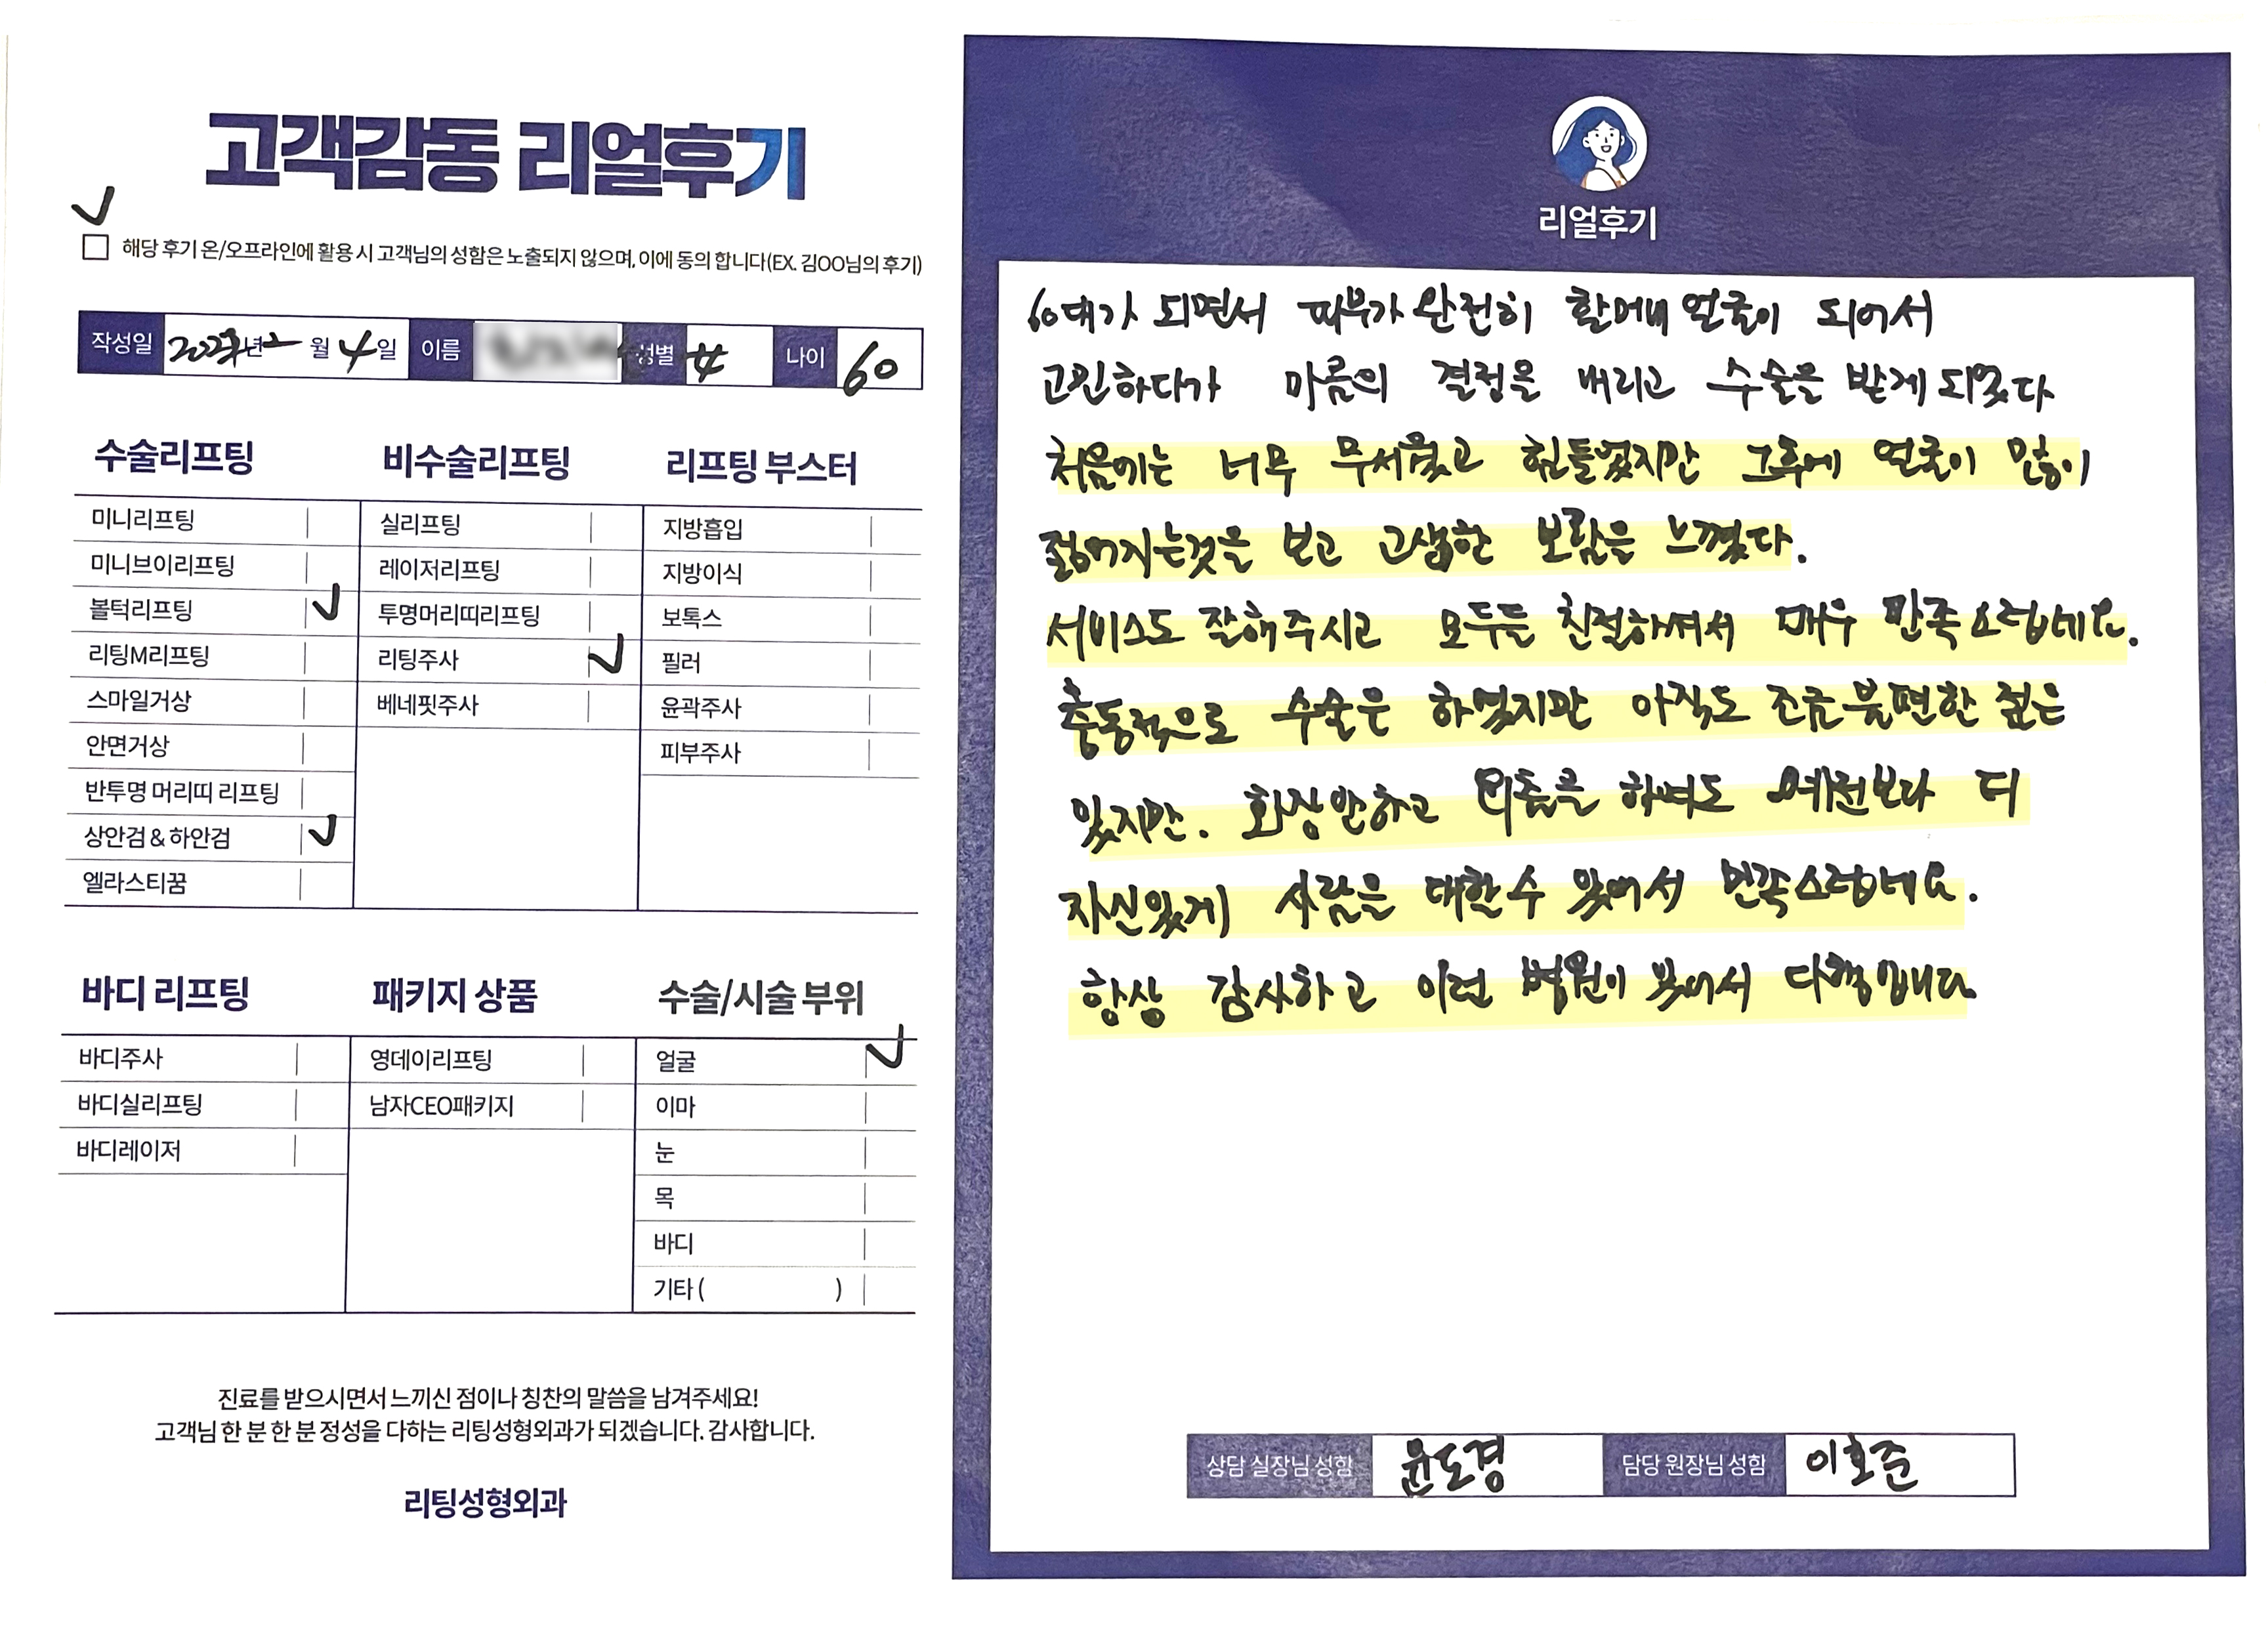 고객감동 리얼후기
해당 후기 온/오프라인에 활용 시 고객님의 성함은 노출되지 않으며, 이에 동의 합니다(EX. 김OO님의 후기)
작성일 년 2 월 4일 이름 성별 나이 60
수술리프팅
미니리프팅
미니브이리프팅
볼턱리프팅
리팅M리프팅
스마일거상
안면거상
반투명 머리띠 리프팅
상안검 & 하안검
엘라스티꿈
비수술리프팅
실리프팅
레이저리프팅
투명머리띠리프팅
리팅주사
베네핏주사
리프팅 부스터
지방흡입
지방이식
보톡스
필러
윤곽주사
피부주사
바디 리프팅
바디주사
바디실리프팅
바디레이저
패키지 상품
영데이리프팅
남자CEO패키지
수술/시술 부위
얼굴
이마
눈
목
바디
기타 ( )
진료를 받으시면서 느끼신 점이나 칭찬의 말씀을 남겨주세요!
고객님 한 분 한 분 정성을 다하는 리팅성형외과가 되겠습니다. 감사합니다.
리팅성형외과
리얼후기
60대가 되면서 피부가 완전히 할머니 얼굴이 되어서
고민하다가 마음의 결정을 내리고 수술을 받게 되었다
처음에는 너무 무서웠고 힘들었지만 그후에 얼굴이 많이
젊어지는것을 보고 고생한 보람을 느꼈다.
서비스도 잘해주시고 모두들 친절하셔서 매우 만족스럽네요.
충동적으로 수술은 하였지만 아직도 조금 불편한 점은
있지만. 화장안하고 외출을 하여도 예전보다 더
자신있게 사람을 대할수 있어서 만족스럽네요.
항상 감사하고 이런 병원이 있어서 다행입니다
상담 실장님 성함 윤도경 담당 원장님 성함 이호준